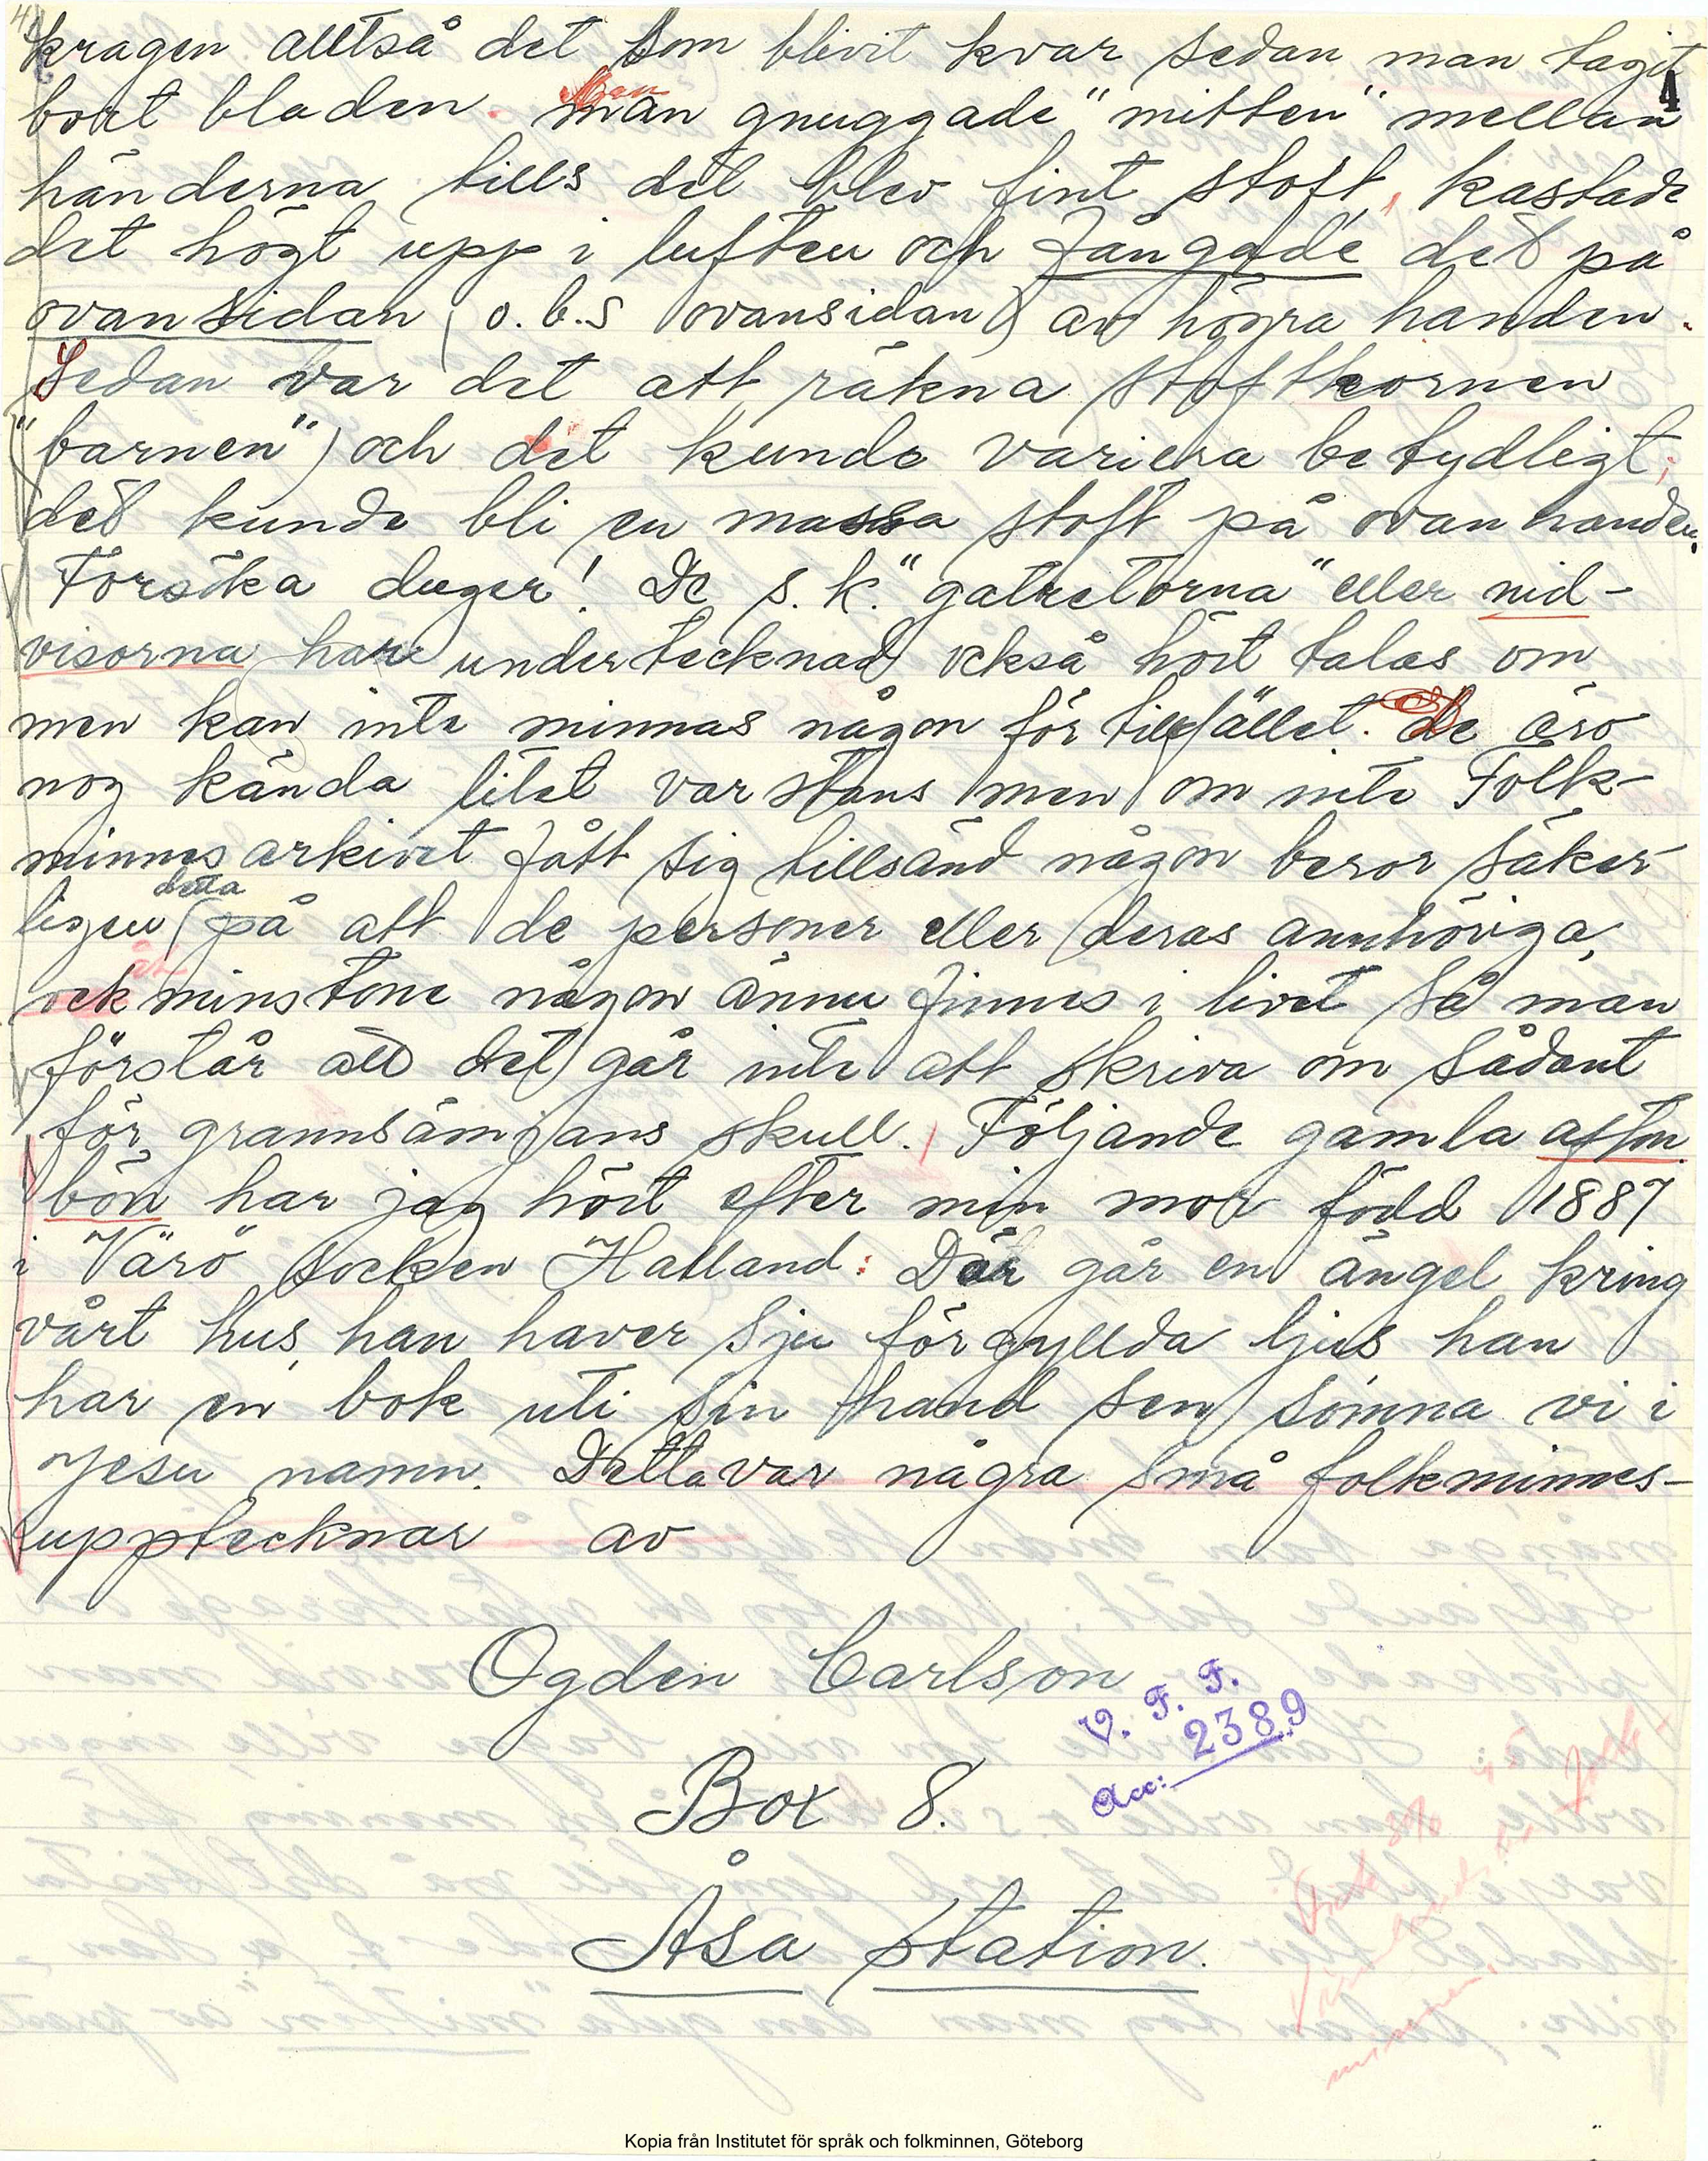 4
kragen alltså det som blivit kvar sedan man tagit
4
bort bladen. Man gnuggade "mitten" mellan
händerna tills det blev fint stoft, kastade
det högt upp i luften och fångade det på
ovansidan (o.b.s ovansidan) av högra handen.
Sedan var det att räkna stoftkornen
("barnen") och det kunde variera betydligt;
det kunde bli en massa stoft på ovanhanden.
Försöka duger! De s.k. "gatretorna" eller nid-
visorna har undertecknad också hört talas om
men kan inte minnas någon för tillfället. De äro
nog kända litet varstans men om inte Folk-
minnesarkivet fått sig tillsänd någon beror säker-
ligen detta på att de personer eller deras annhöriga,
åt minstone någon ännu finnes i livet så man
förstår att det går inte att skriva om sådant
för grannsämjans skull. Följande gamla afton
bön har jag hört efter min mor född 1887
i Värö socken Halland: Där går en ängel kring
vårt hus, han haver sju förgyllda ljus han
har en bok uti sin hand sen somna vi i
Jesu namn. Detta var några små folkminnes-
upptecknar av
Ogden Carlson
V. F. F.
2389
Acc:
Box 8.
Åsa station.
Kopia från Institutet för språk och folkminnen, Göteborg